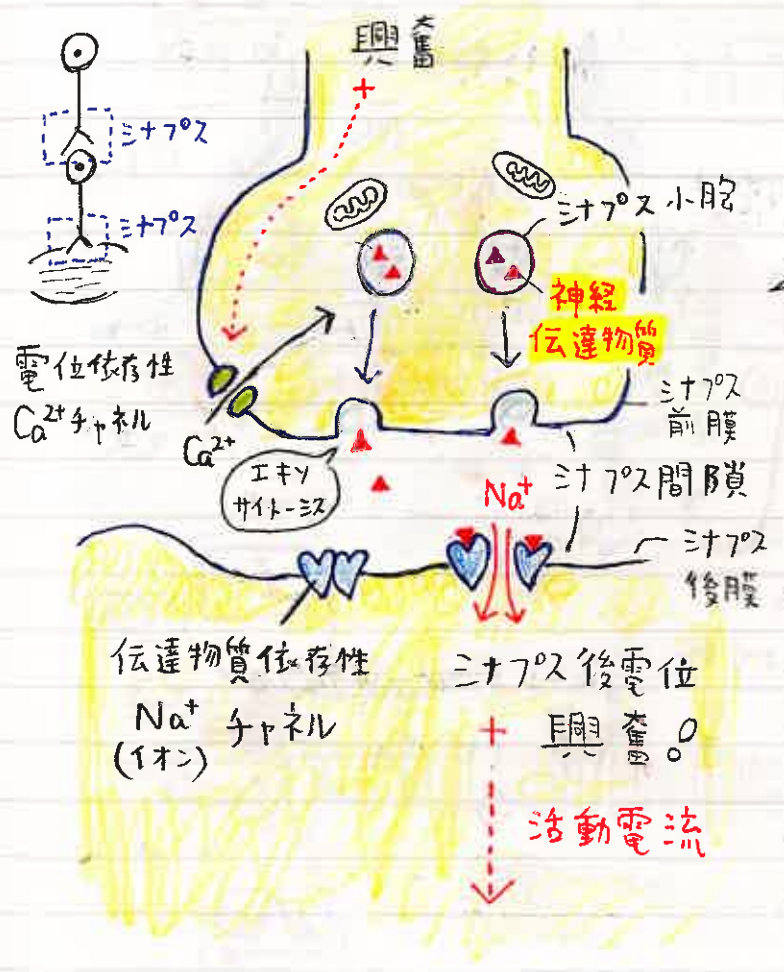 興奮
+
シナプス
シナプス
シナプス小胞
神経
伝達物質
電位依存性
Ca²⁺チャネル
Ca²⁺
シナプス
前膜
エキソ
サイトーシス
Na⁺
シナプス間隙
シナプス
後膜
伝達物質依存性
Na⁺チャネル
(イオン)
シナプス後電位
+ 興奮!
活動電流